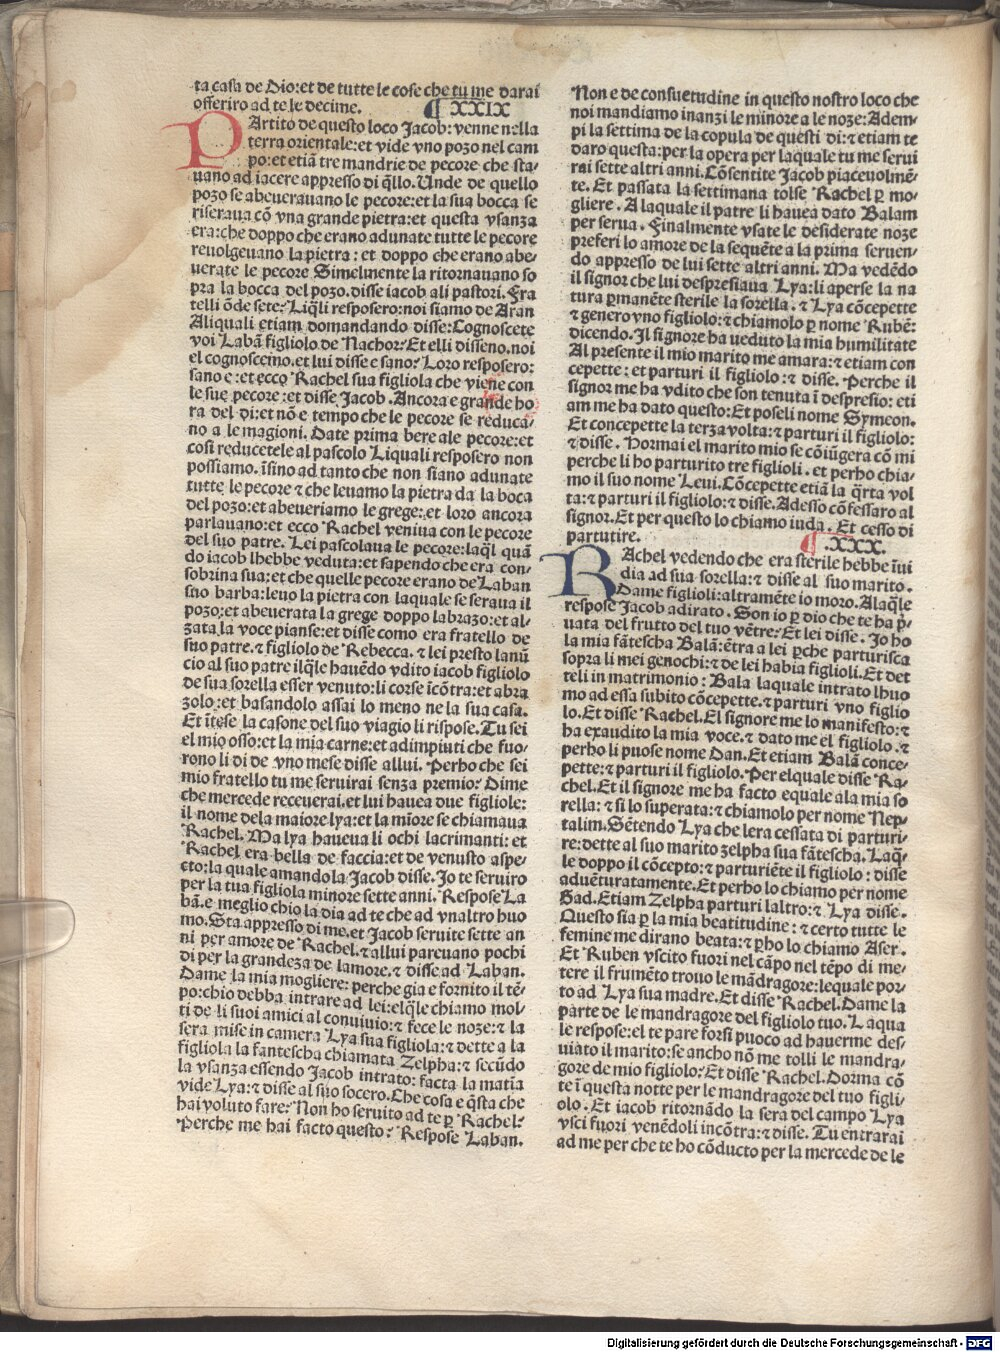 ta casa de Dio:et de tutte le cose che tu me darai
offeriro ad te le decime. ¶ XXIX
PArtito de questo loco Jacob: venne nella
terra orientale:et vide vno pozo nel cam
po:et etiā tre mandrie de pecore che sta-
uano ad iacere appresso di q̄llo. Unde de quello
pozo se abeuerauano le pecore:et la sua bocca se
riseraua cō vna grande pietra:et questa vsanza
era:che doppo che erano adunate tutte le pecore
reuolgeuano la pietra : et doppo che erano abe-
uerate le pecore Simelmente la ritornauano so
pra la bocca del pozo. disse iacob ali pastori. Fra
telli ōde sete? Liq̄li resposero:noi siamo de Aran
Aliquali etiam domandando disse:Cognoscete
voi Labā figliolo de Nachor? Et elli disseno. noi
el cognoscemo. et lui disse e sano? Loro resposero:
sano e :et ecco Rachel sua figliola che viene con
le sue pecore :et disse Jacob . Ancora e grande ho
ra del di:et nō e tempo che le pecore se reduca-
no a le magioni. Date prima bere ale pecore:et
cosi reducetele al pascolo Liquali resposero non
possiamo. īsino ad tanto che non siano adunate
tutte le pecore ⁊ che leuamo la pietra da la boca
del pozo:et abeueriamo le grege:et loro ancora
parlauano:et ecco Rachel veniua con le pecore
del suo patre. Lei pascolaua le pecore:laq̄l quā
do iacob lhebbe veduta:et sapendo che era con-
sobrina sua:et che quelle pecore erano de Laban
suo barba:leuo la pietra con laquale se seraua il
pozo:et abeuerata la grege doppo labrazo:et al-
zata la voce pianse:et disse como era fratello de
suo patre. ⁊ figliolo de Rebecca. ⁊ lei presto lanū
cio al suo patre ilq̄le hauēdo vdito iacob figliolo
de sua sorella esser venuto:li corse īcōtra:et abra
zolo:et basandolo assai lo meno ne la sua casa.
Et ītese la casone del suo viagio li rispose. Tu sei
el mio osso:et la mia carne:et adimpiuti che fuo-
rono li di de vno mese disse allui. Perho che sei
mio fratello tu me seruirai senza premio? Dime
che mercede receuerai. et lui hauea due figliole:
il nome dela maiore lya:et la mīore se chiamaua
Rachel. Ma lya haueua li ochi lacrimanti: et
Rachel era bella de faccia:et de venusto aspe-
cto:la quale amandola Jacob disse. Jo te seruiro
per la tua figliola minore sette anni. Respose La
bā. e meglio chio la dia ad te che ad vnaltro huo
mo. Sta appresso di me. et Jacob seruite sette an
ni per amore de Rachel. ⁊ allui pareuano pochi
di per la grandeza de lamore. ⁊ disse ad Laban.
Dame la mia mogliere: perche gia e fornito il tē-
po:chio debba intrare ad lei:elq̄le chiamo mol-
ti de li suoi amici al conuiuio: ⁊ fece le noze:⁊ la
sera mise in camera Lya sua figliola:⁊ dette a la
figliola la fantescha chiamata Zelpha:⁊ secūdo
la vsanza essendo Jacob intrato: facta la matīa
vide Lya:⁊ disse al suo socero. Che cosa e q̄sta che
hai voluto fare? Non ho seruito ad te ꝑ Rachel?
Perche me hai facto questo? Respose Laban.
Non e de consuetudine in questo nostro loco che
noi mandiamo inanzi le minore a le noze:Adem-
pi la settima de la copula de questi di:⁊ etiam te
daro questa:per la opera per laquale tu me serui
rai sette altri anni. Cōsentite Jacob piaceuolmē-
te. Et passata la settimana tolse Rachel ꝑ mo-
gliere . A laquale il patre li hauea dato Balam
per serua . Finalmente vsate le desiderate noze
preferi lo amore de la sequēte a la prima seruen-
do appresso de lui sette altri anni. Ma vedēdo
il signor che lui despresiaua Lya:li aperse la na
tura ꝑmanēte sterile la sorella. ⁊ Lya cōcepette
⁊ genero vno figliolo:⁊ chiamolo ꝑ nome Rubē:
dicendo. Il signore ha veduto la mia humilitate
Al presente il mio marito me amara:⁊ etiam con
cepette: et parturi il figliolo :⁊ disse. Perche il
signor me ha vdito che son tenuta ī despresio: eti
am me ha dato questo:Et poseli nome Symeon.
Et concepette la terza volta:⁊ parturi il figliolo:
⁊ disse . Hormai el marito mio se cōiūgera cō mi
perche li ho parturito tre figlioli . et perho chia-
mo il suo nome Leui. Cōcepette etiā la q̄rta vol
ta:⁊ parturi il figliolo:⁊ disse. Adesso cōfessaro al
signor. Et per questo lo chiamo iuda . Et cesso di
partutire. ¶ .XXX.
RAchel vedendo che era sterile hebbe īui
dia ad sua sorella:⁊ disse al suo marito .
Dame figlioli:altramēte io moro. Alaq̄le
respose Jacob adirato . Son io ꝑ dio che te ha p̄-
uata del frutto del tuo vētre? Et lei disse . Jo ho
la mia fātescha Balā:ētra a lei ꝑche parturisca
sopra li mei genochi:⁊ de lei habia figlioli. Et det
teli in matrimonio : Bala laquale intrato lhuo
mo ad essa subito cōcepette. ⁊ parturi vno figlio
lo. Et disse Rachel. El signore me lo manifesto:⁊
ha exaudito la mia voce. ⁊ dato me el figliolo .⁊
perho li puose nome Dan. Et etiam Balā conce-
pette:⁊ parturi il figliolo. Per elquale disse Ra-
chel. Et il signore me ha facto equale ala mia so
rella: ⁊ si lo superata:⁊ chiamolo per nome Nep-
talim. Sētendo Lya che lera cessata di parturi-
re:dette al suo marito zelpha sua fātescha. Laq̄-
le doppo il cōcepto:⁊ parturiēte il figliolo : disse
aduēturatamente. Et perho lo chiamo per nome
Gad. Etiam Zelpha parturi laltro:⁊ Lya disse.
Questo sia ꝑ la mia beatitudine : ⁊ certo tutte le
femine me dirano beata:⁊ ꝑho lo chiamo Aser.
Et Ruben vscito fuori nel cāpo nel tēpo di me-
tere il frumēto trouo le mādragore:lequale por-
to ad Lya sua madre. Et disse Rachel. Dame la
parte de le mandragore del figliolo tuo. Laqua
le respose:el te pare forsi puoco ad hauerme des-
uiato il marito:se ancho nō me tolli le mandra-
gore de mio figliolo? Et disse Rachel. Dorma cō
te ī questa notte per le mandragore del tuo figli-
olo . Et iacob ritornādo la sera del campo Lya
vsci fuori venēdoli incōtra:⁊ disse. Tu entrarai
ad me per che te ho cōducto per la mercede de le
Digitalisierung gefördert durch die Deutsche Forschungsgemeinschaft - DFG